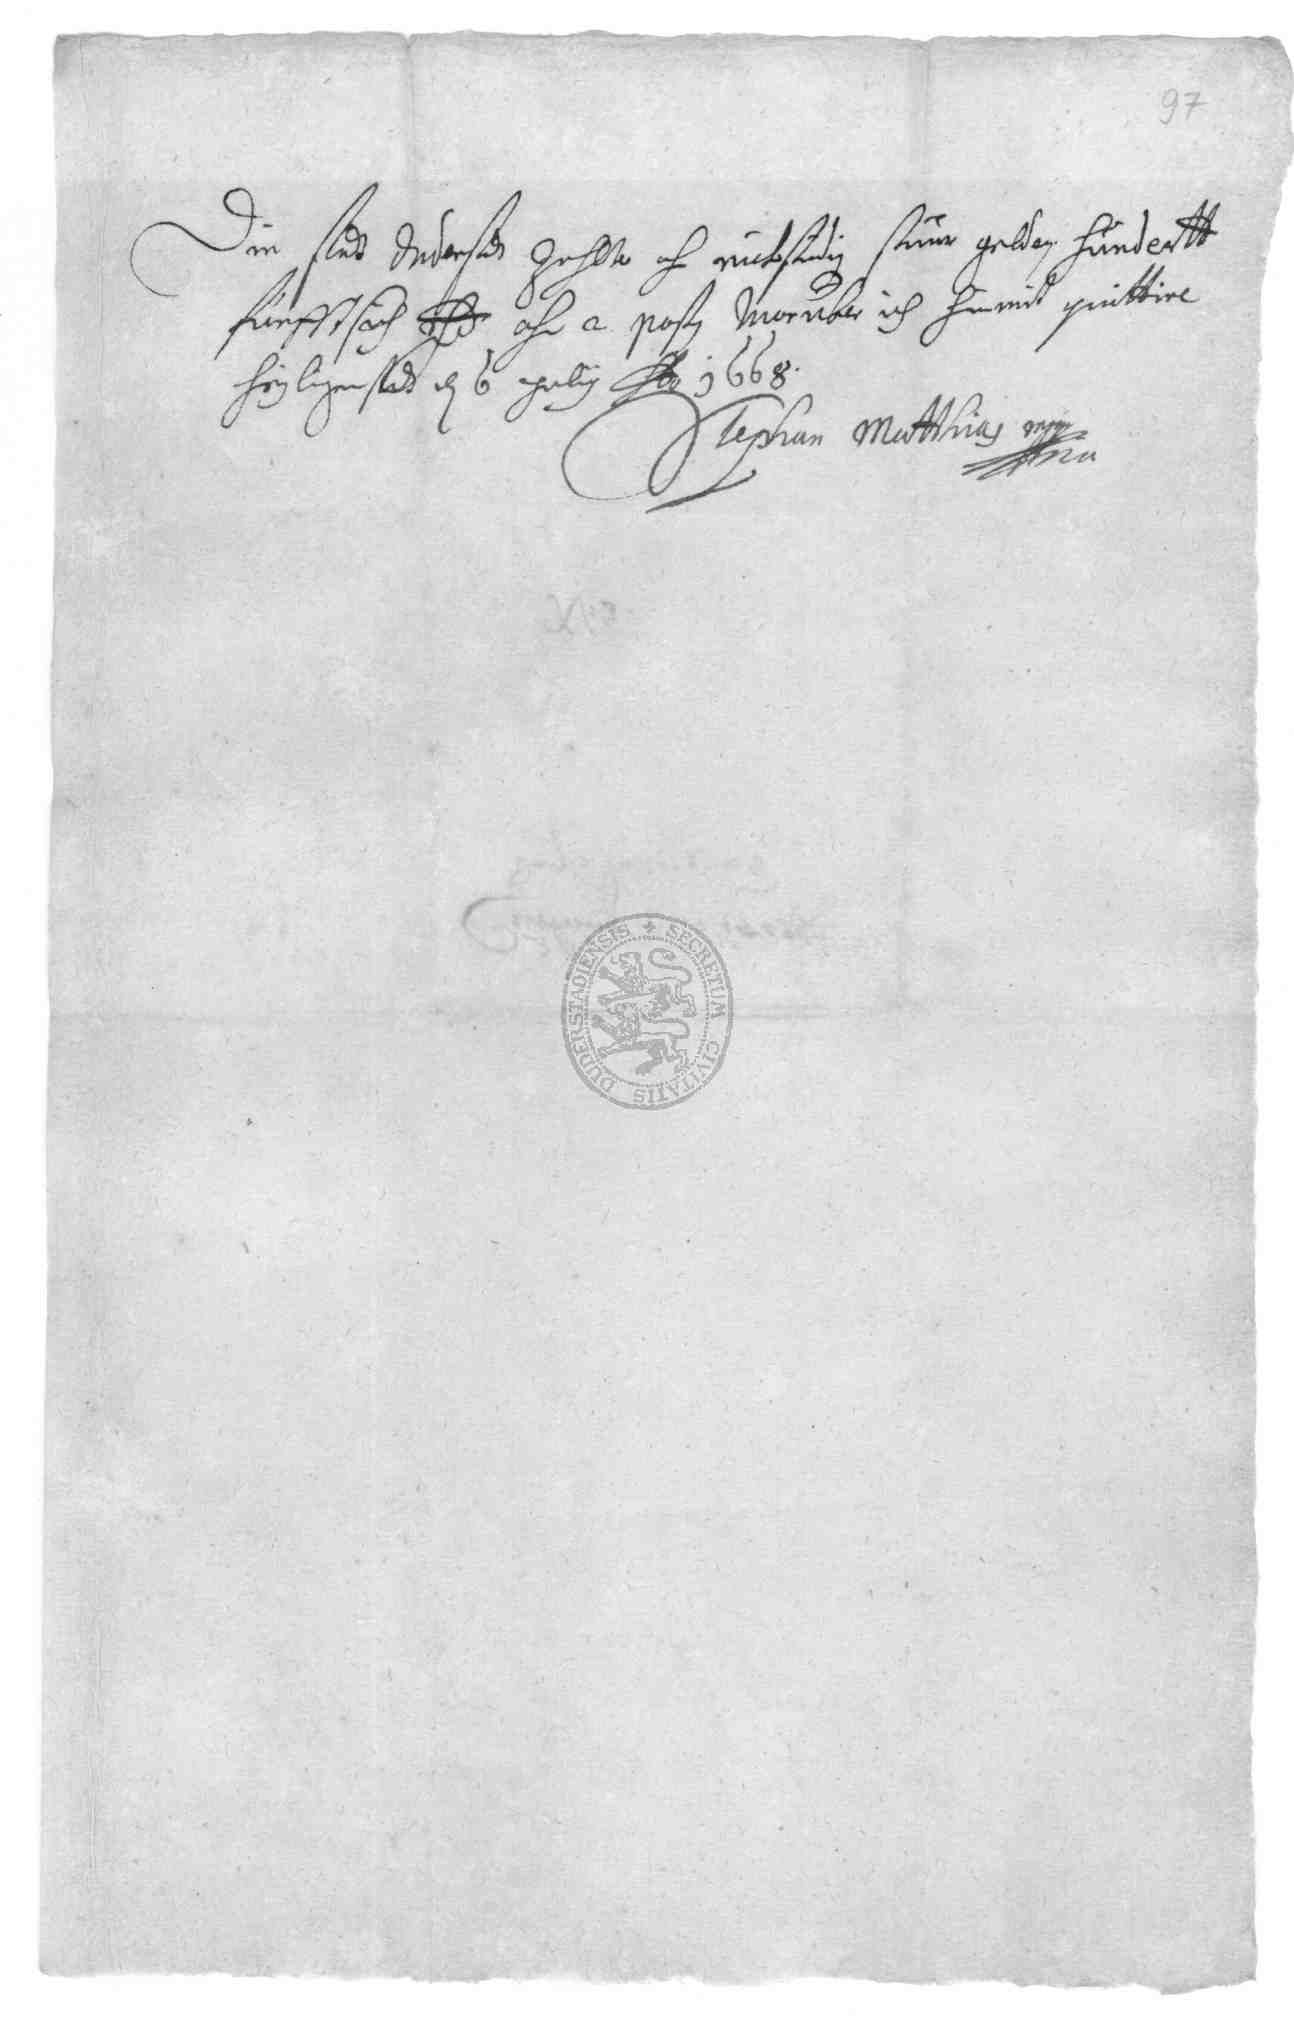 97
Die stadt Duderstadt zahlte ahn rückstendig stüer gelder hundertt
fünfftzich ahn a posto worüber ich hiemit quittire
Heyligenstadt d 6 Ao 1668.
Stephan Matthias mp
SECRETUM CIVITATIS DUDERSTADIENSIS